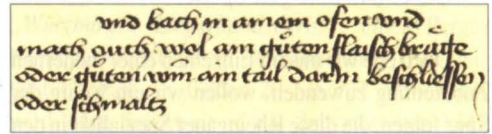 vnd bach in ainem ofen vnd
mach ouch wol ain gůten flaisch
oder gůten win ain tail darin beschliessen
oder schmaltz